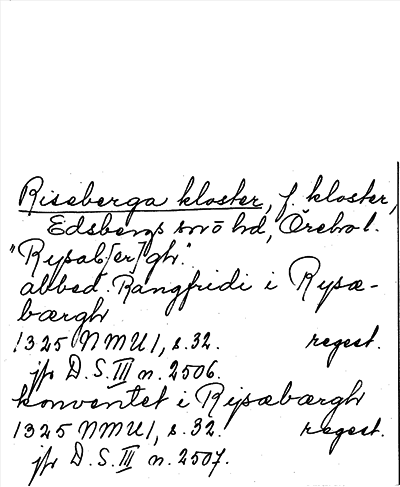 Riseberga kloster, f. kloster,
Edsbergs snö hd, Örebro l.
"Rysab[er]gh".
abbed. Rangfridi i Rysæ-
bærgh
1325 NMU 1, s. 32. regest.
jfr D.S. III n. 2506.
konventet i Rysæbærgh
1325 NMU 1, s. 32. regest.
jfr D.S. III n. 2507.